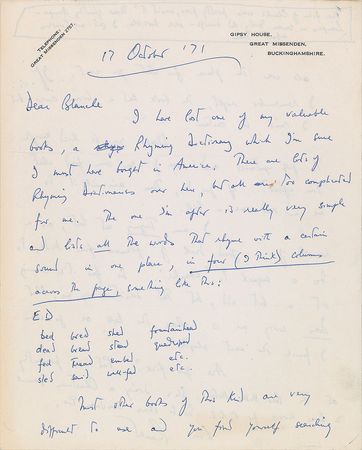 TELEPHONE:
GREAT MISSENDEN 2757.
GIPSY HOUSE,
GREAT MISSENDEN,
BUCKINGHAMSHIRE.
17 October '71
Dear Blanche
I have lost one of my valuable
books, a Rhyming Dictionary which I'm sure
I must have bought in America. There are lots of
Rhyming Dictionaries over here, but all are too complicated
for me. The one I'm after is really very simple
and lists all the words that rhyme with a certain
sound in one place, in four (I think) columns
across the page, something like this:
ED
bed bred shed fountainhead
dead bread stead quadruped
fed tread embed etc.
sled said well-fed etc.
Most other books of this kind are very
difficult to use and you find yourself searching